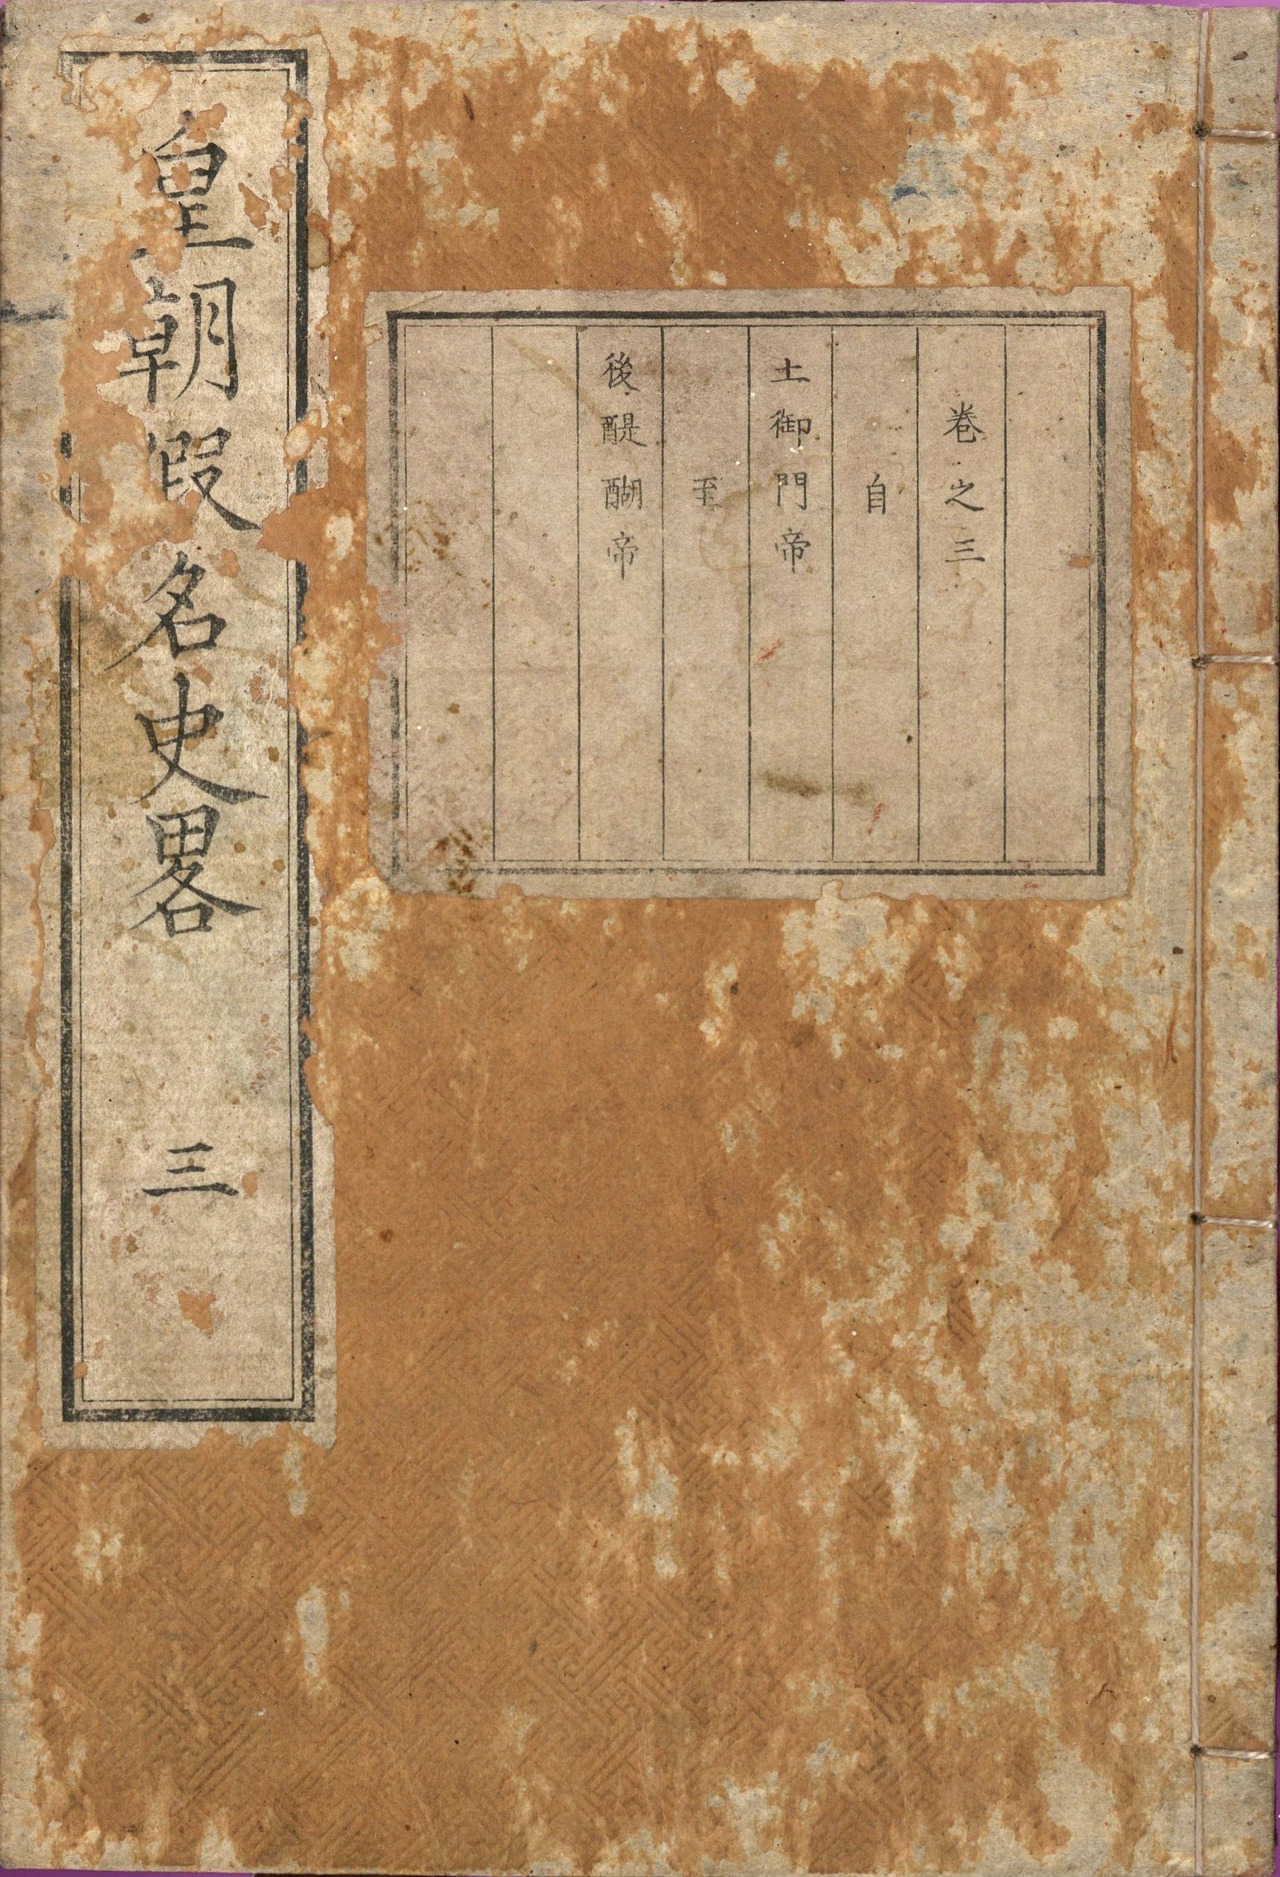 卷之三
自
土御門帝
至
後醍醐帝
皇朝假名史畧
三